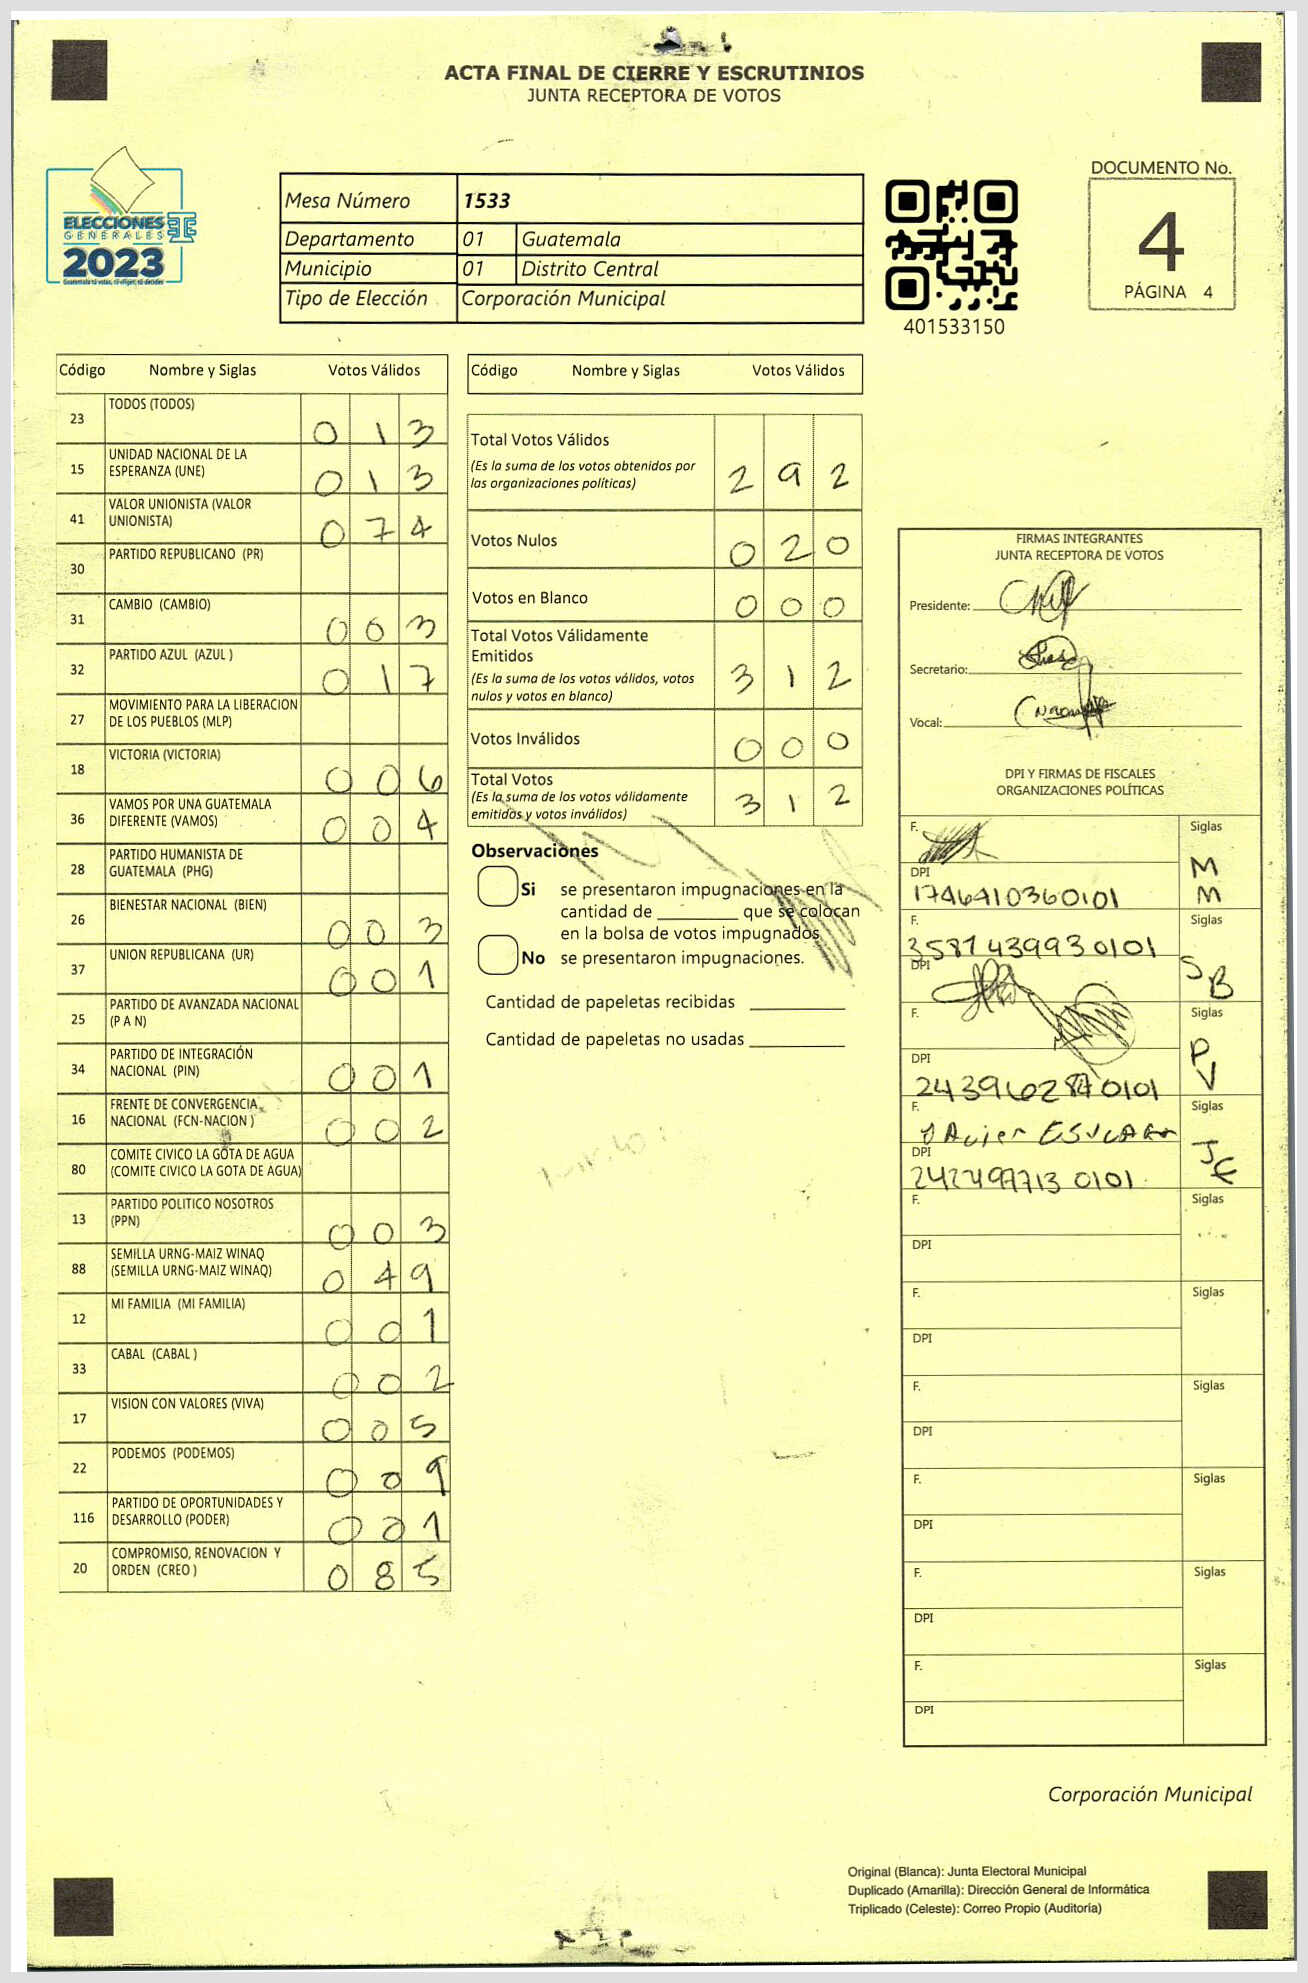 ACTA FINAL DE CIERRE Y ESCRUTINIOS
JUNTA RECEPTORA DE VOTOS
ELECCIONES
GENERALES
2023
Mesa Número 1533
Departamento 01 Guatemala
Municipio 01 Distrito Central
Tipo de Elección Corporación Municipal
401533150
DOCUMENTO No.
4
PÁGINA 4
Código Nombre y Siglas Votos Válidos
23 TODOS (TODOS) 0 1 3
15 UNIDAD NACIONAL DE LA
ESPERANZA (UNE) 0 1 3
41 VALOR UNIONISTA (VALOR
UNIONISTA) 0 7 4
30 PARTIDO REPUBLICANO (PR)
31 CAMBIO (CAMBIO) 0 0 3
32 PARTIDO AZUL (AZUL ) 0 1 7
27 MOVIMIENTO PARA LA LIBERACION
DE LOS PUEBLOS (MLP)
18 VICTORIA (VICTORIA) 0 0 6
36 VAMOS POR UNA GUATEMALA
DIFERENTE (VAMOS) 0 0 4
28 PARTIDO HUMANISTA DE
GUATEMALA (PHG)
26 BIENESTAR NACIONAL (BIEN) 0 0 3
37 UNION REPUBLICANA (UR) 0 0 1
25 PARTIDO DE AVANZADA NACIONAL
(P A N)
34 PARTIDO DE INTEGRACIÓN
NACIONAL (PIN) 0 0 1
16 FRENTE DE CONVERGENCIA
NACIONAL (FCN-NACION ) 0 0 2
80 COMITE CIVICO LA GOTA DE AGUA
(COMITE CIVICO LA GOTA DE AGUA)
13 PARTIDO POLITICO NOSOTROS
(PPN) 0 0 3
88 SEMILLA URNG-MAIZ WINAQ
(SEMILLA URNG-MAIZ WINAQ) 0 4 9
12 MI FAMILIA (MI FAMILIA) 0 0 1
33 CABAL (CABAL ) 0 0 2
17 VISION CON VALORES (VIVA) 0 0 5
22 PODEMOS (PODEMOS) 0 0 9
116 PARTIDO DE OPORTUNIDADES Y
DESARROLLO (PODER) 0 0 1
20 COMPROMISO, RENOVACION Y
ORDEN (CREO ) 0 8 5
Código Nombre y Siglas Votos Válidos
Total Votos Válidos
(Es la suma de los votos obtenidos por
las organizaciones políticas) 2 9 2
Votos Nulos 0 2 0
Votos en Blanco 0 0 0
Total Votos Válidamente
Emitidos
(Es la suma de los votos válidos, votos
nulos y votos en blanco) 3 1 2
Votos Inválidos 0 0 0
Total Votos
(Es la suma de los votos válidamente
emitidos y votos inválidos) 3 1 2
Observaciones
Si se presentaron impugnaciones en la
cantidad de ________ que se colocan
en la bolsa de votos impugnados
No se presentaron impugnaciones.
Cantidad de papeletas recibidas
Cantidad de papeletas no usadas
FIRMAS INTEGRANTES
JUNTA RECEPTORA DE VOTOS
Presidente:
Secretario:
Vocal:
DPI Y FIRMAS DE FISCALES
ORGANIZACIONES POLÍTICAS
F. Siglas
M
M
DPI
1746410360101
F. Siglas
3587439930101
DPI
S
B
F. Siglas
P
V
DPI
F. Siglas
DPI
J
E
F. Siglas
DPI
F. Siglas
DPI
F. Siglas
DPI
F. Siglas
DPI
F. Siglas
DPI
F. Siglas
DPI
Corporación Municipal
Original (Blanca): Junta Electoral Municipal
Duplicado (Amarilla): Dirección General de Informática
Triplicado (Celeste): Correo Propio (Auditoría)